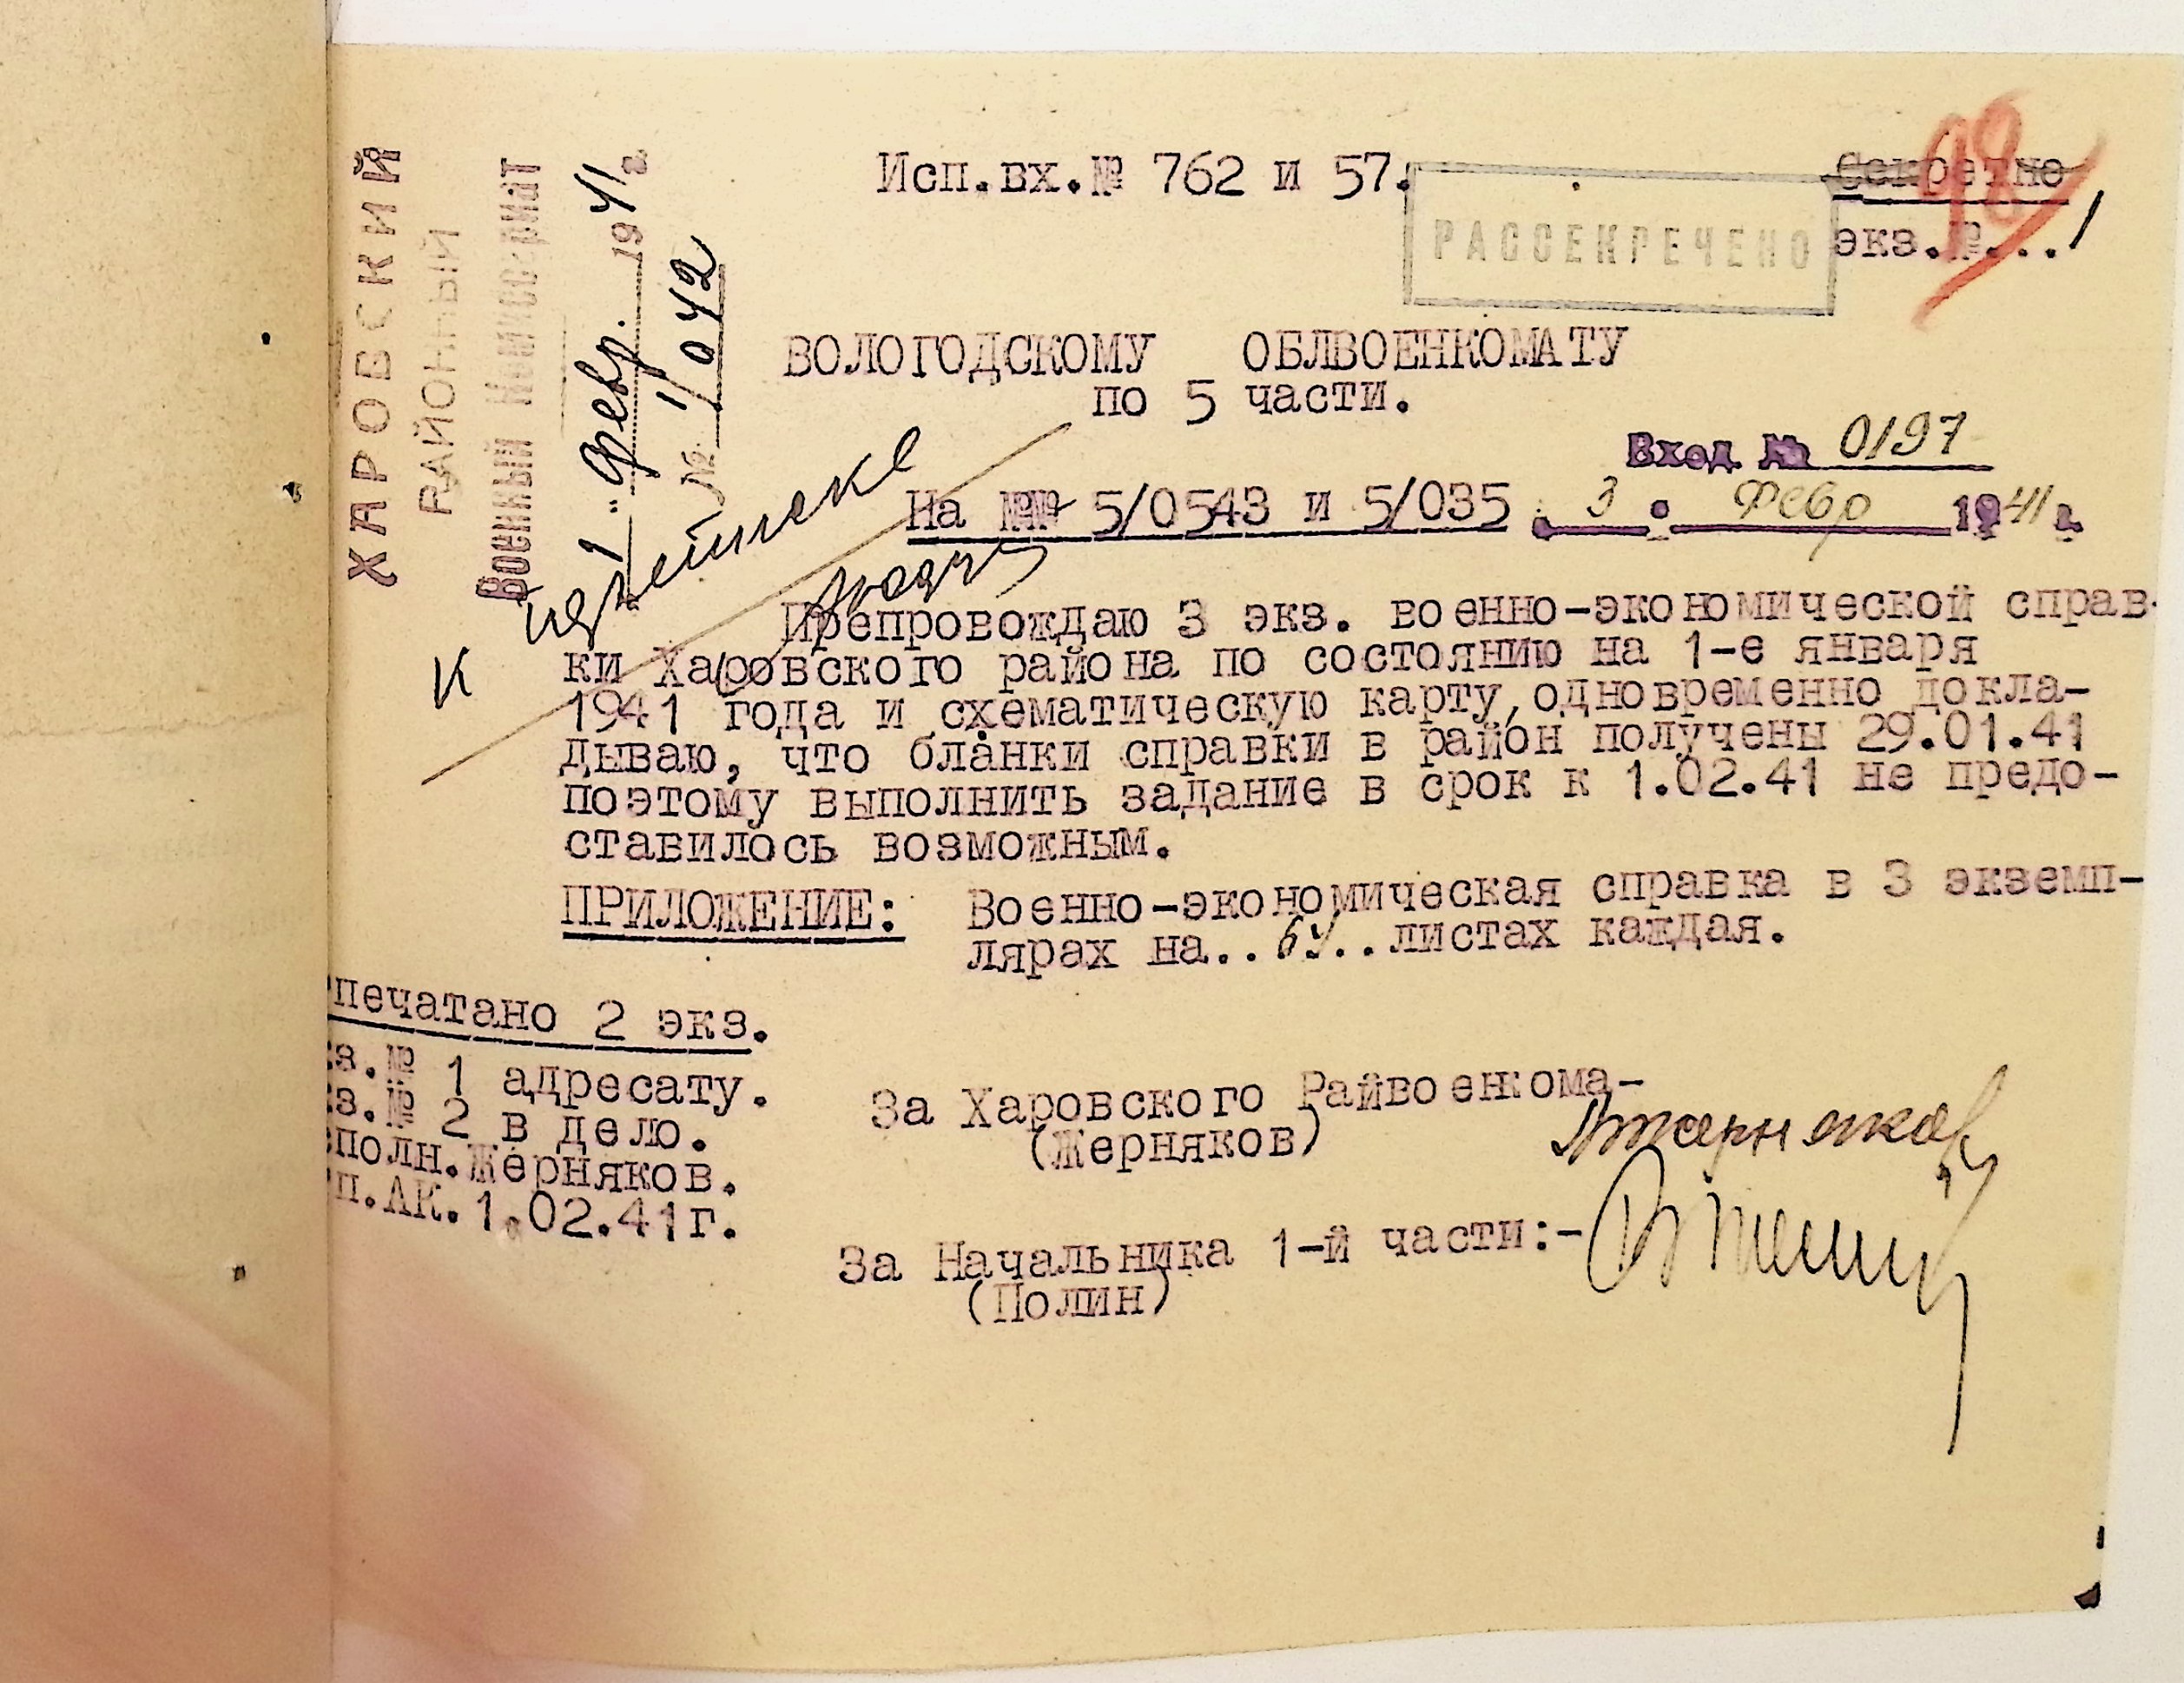 ХАРОВСКИЙ
РАЙОННЫЙ
Военный Комиссариат
1 " февр. 1941 г.
№ 1/042
Исп.вх.№ 762 и 57.
Секретно
98
экз.№...1
РАССЕКРЕЧЕНО
ВОЛОГОДСКОМУ ОБЛВОЕНКОМАТУ
по 5 части.
Вход № 0197
На №№ 5/0543 и 5/035
3 февр 1941 г.
К
Препровождаю 3 экз. военно-экономической справ-
ки Харовского района по состоянию на 1-е января
1941 года и схематическую карту,одновременно докла-
дываю, что бланки справки в район получены 29.01.41
поэтому выполнить задание в срок к 1.02.41 не предо-
ставилось возможным.
ПРИЛОЖЕНИЕ: Военно-экономическая справка в 3 экземп-
лярах на.. ..листах каждая.
печатано 2 экз.
з.№ 1 адресату.
з.№ 2 в дело.
полн.Жерняков.
п.АК.1.02.41г.
За Харовского Райвоенкома-
(Жерняков)
Жерняков
За Начальника 1-й части:-
(Полин)